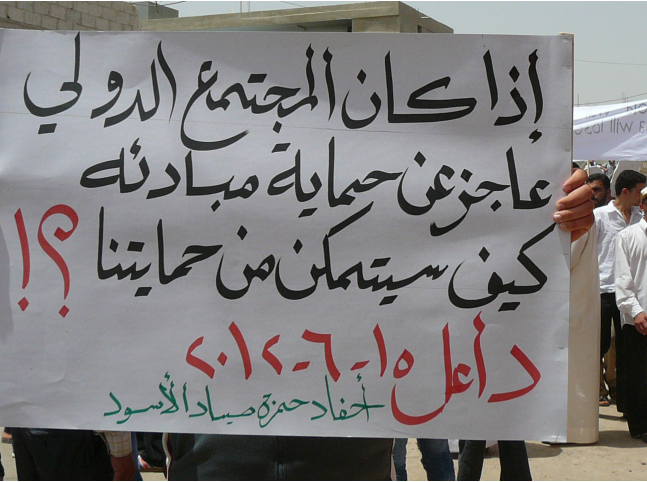 إذا كان المجتمع الدولي
عاجز عن حماية مبادئه
كيف سيتمكن من حمايتنا ؟!
داعل ١٥-٦-٢٠١٢
أحفاد حمزة صياد الأسود
will